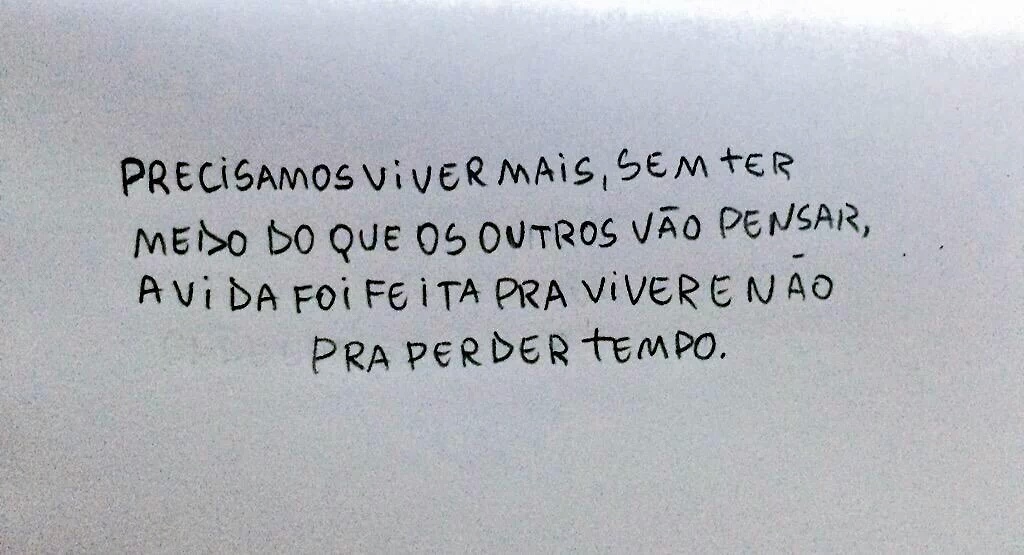 PRECISAMOS VIVER MAIS, SEM TER
MEDO DO QUE OS OUTROS VÃO PENSAR,
A VIDA FOI FEITA PRA VIVER E NÃO
PRA PERDER TEMPO.